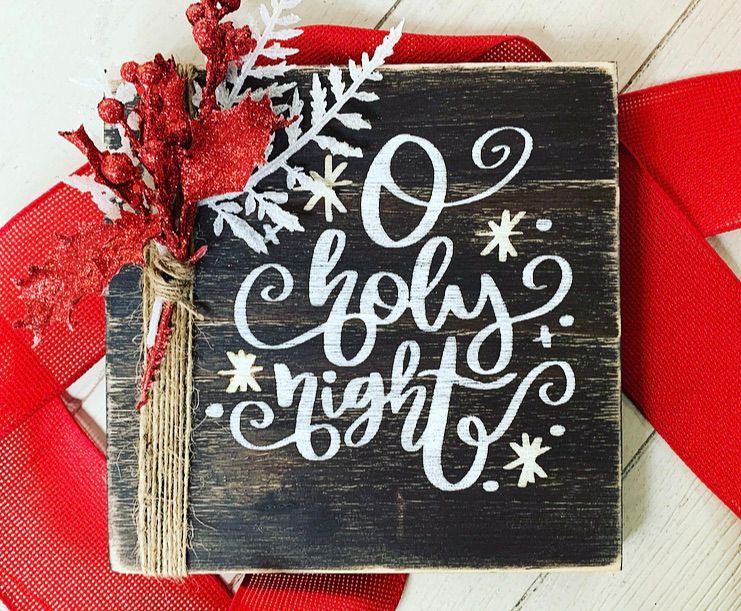 O
holy
night